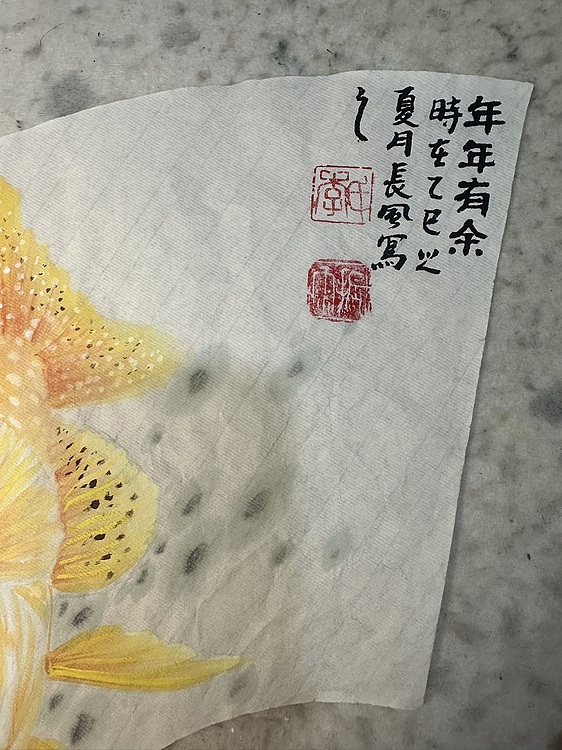 年年有余
時在乙巳之
夏月長風寫
之
李氏